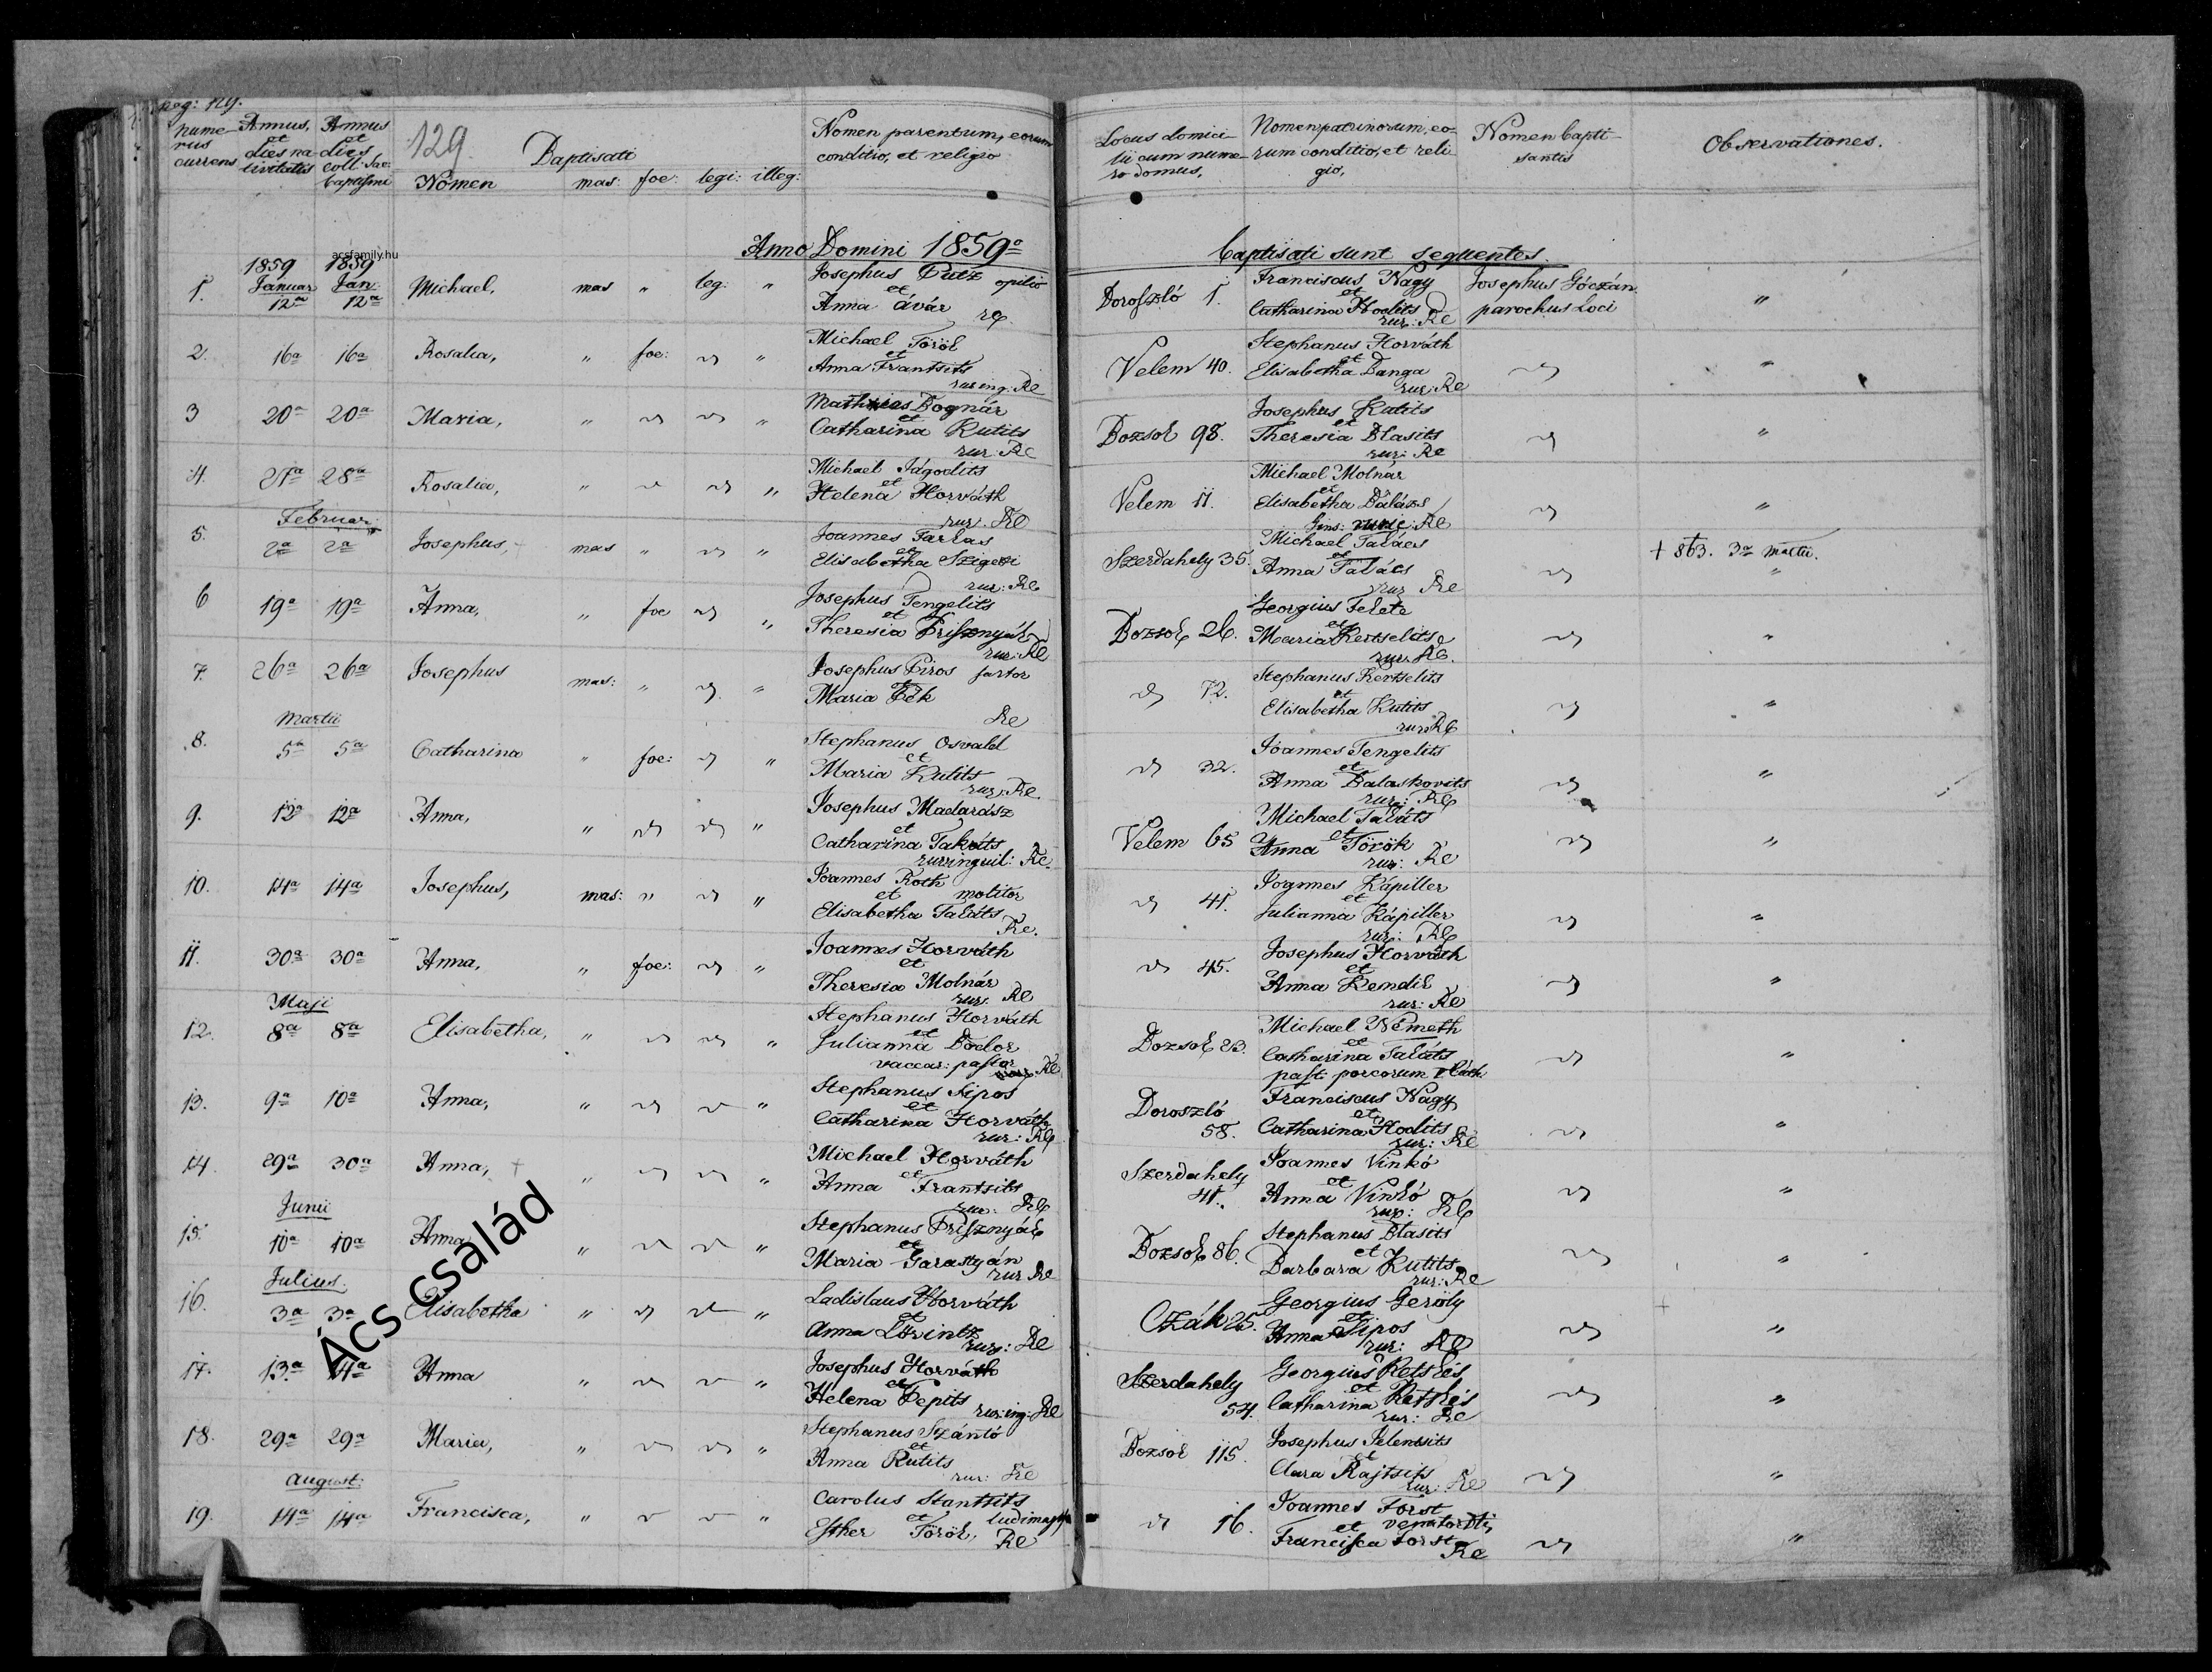 pag: 129.
nume-
rus
currens
Annus,
et
dies na-
tivitatis
Annus
et
dies
coll. Sac:
baptismi
129.
Baptisati
Nomen mas: foe: legi: illeg:
Nomen parentum, eorum
conditio, et religio
Locus domici-
lii cum nume-
ro domus,
Nomen patrinorum, eo-
rum conditio, et reli-
gio,
Nomen bapti-
santis
Observationes.
acsfamily.hu
Anno Domini 1859º baptisati sunt sequentes.
1859 1859
1. Januar 12ª Jan: 12ª Michael, mas " leg: "
Josephus Putz opilio
et
Anna Avár
Doroszló 1.
Franciscus Nagy
et
Catharina Hodits
rur: Re
Josephus Góczán
parochus Loci
"
2. 16ª 16ª Rosalia, " foe: "
Michael Török
et
Anna Frantsits
rur: inq: Re
Velem 40.
Stephanus Horváth
et
Elisabetha Danga
rur: Re
"
3 20ª 20ª Maria, " "
Mathias Bognár
et
Catharina Kutits
rur: Re
Bozsok 98.
Josephus Kutits
et
Theresia Blasits
rur: Re
"
4. 27ª 28ª Rosalia, " "
Michael Jágodits
et
Helena Horváth
rur: Re
Velem 11.
Michael Molnár
et
Elisabetha Balázs
Re
"
Februar:
5. 2ª 2ª Josephus, + mas " "
Joannes Farkas
et
Elisabetha Szigeti
rur: Re
Szerdahely 35.
Michael Takács
et
Anna Takács
rur Re
+ 863. 3ª Martii.
"
6 19ª 19ª Anna, " foe "
Josephus Tengelits
et
Theresia Prisznyák
rur: Re
Bozsok 26.
Georgius Fekete
et
Maria Kertselits
rur: Re.
"
7. 26ª 26ª Josephus mas: " "
Josephus Piros
Maria Pék
Re
72.
Stephanus Kertselits
et
Elisabetha Kutits
rur: Re
"
Martii
8. 5ª 5ª Catharina " foe: "
Stephanus Osvald
et
Maria Kutits
rur: Re
32.
Joannes Tengelits
et
Anna Balaskovits
rur: Re
"
9. 12ª 12ª Anna, " "
Josephus Madarász
et
Catharina Takáts
rur: inquil: Re.
Velem 65
Michael Takáts
et
Anna Török
rur: Re
"
10. 14ª 14ª Josephus, mas: " "
Joannes Roth
et molitor
Elisabetha Takáts
Re.
41.
Joannes Kápiller
et
Julianna Kápiller
rur: Re
"
11. 30ª 30ª Anna, " foe: "
Joannes Horváth
et
Theresia Molnár
rur: Re
45.
Josephus Horváth
et
Anna Kendik
rur: Re
"
Maji
12. 8ª 8ª Elisabetha, " "
Stephanus Horváth
et
Julianna Bodor
vaccar: pastor Re
Bozsok 23.
Michael Németh
et
Catharina Takáts
past: porcorum
"
13. 9ª 10ª Anna, " "
Stephanus Sipos
et
Catharina Horváth
rur: Re
Doroszló
58.
Franciscus Nagy
et
Catharina Hodits
rur: Re
"
14. 29ª 30ª Anna, + " "
Michael Horváth
et
Anna Frantsits
rur: Re
Szerdahely
41.
Joannes Vinkó
et
Anna Vinkó
rur: Re
"
Junii
15. 10ª 10ª Anna " "
Stephanus Prisznyák
et
Maria Garastyán
rur Re
Bozsok 86.
Stephanus Blasits
et
Barbara Kutits
rur: Re
"
Julius.
16. 3ª 3ª Elisabetha " "
Ladislaus Horváth
et
Anna Lörintz
rur: Re
Czák 25.
Georgius Geröly
et
Anna Sipos
rur: Re
"
17. 13ª 14ª Anna " "
Josephus Horváth
et
Helena Pepits
rur: inq: Re
Szerdahely
54.
Georgius Retskés
et
Catharina Retskés
rur: Re
"
18. 29ª 29ª Maria, " "
Stephanus Szántó
et
Anna Kutits
rur: Re
Bozsok 115.
Josephus Pelentsits
et
Clara Rajtsits
rur: Re
"
August:
19. 14ª 14ª Francisca, " "
Carolus Stantsits
et ludimag
Esther Török, Re
16.
Joannes Forst
et
Francisca Forst
Re
"
Ács család